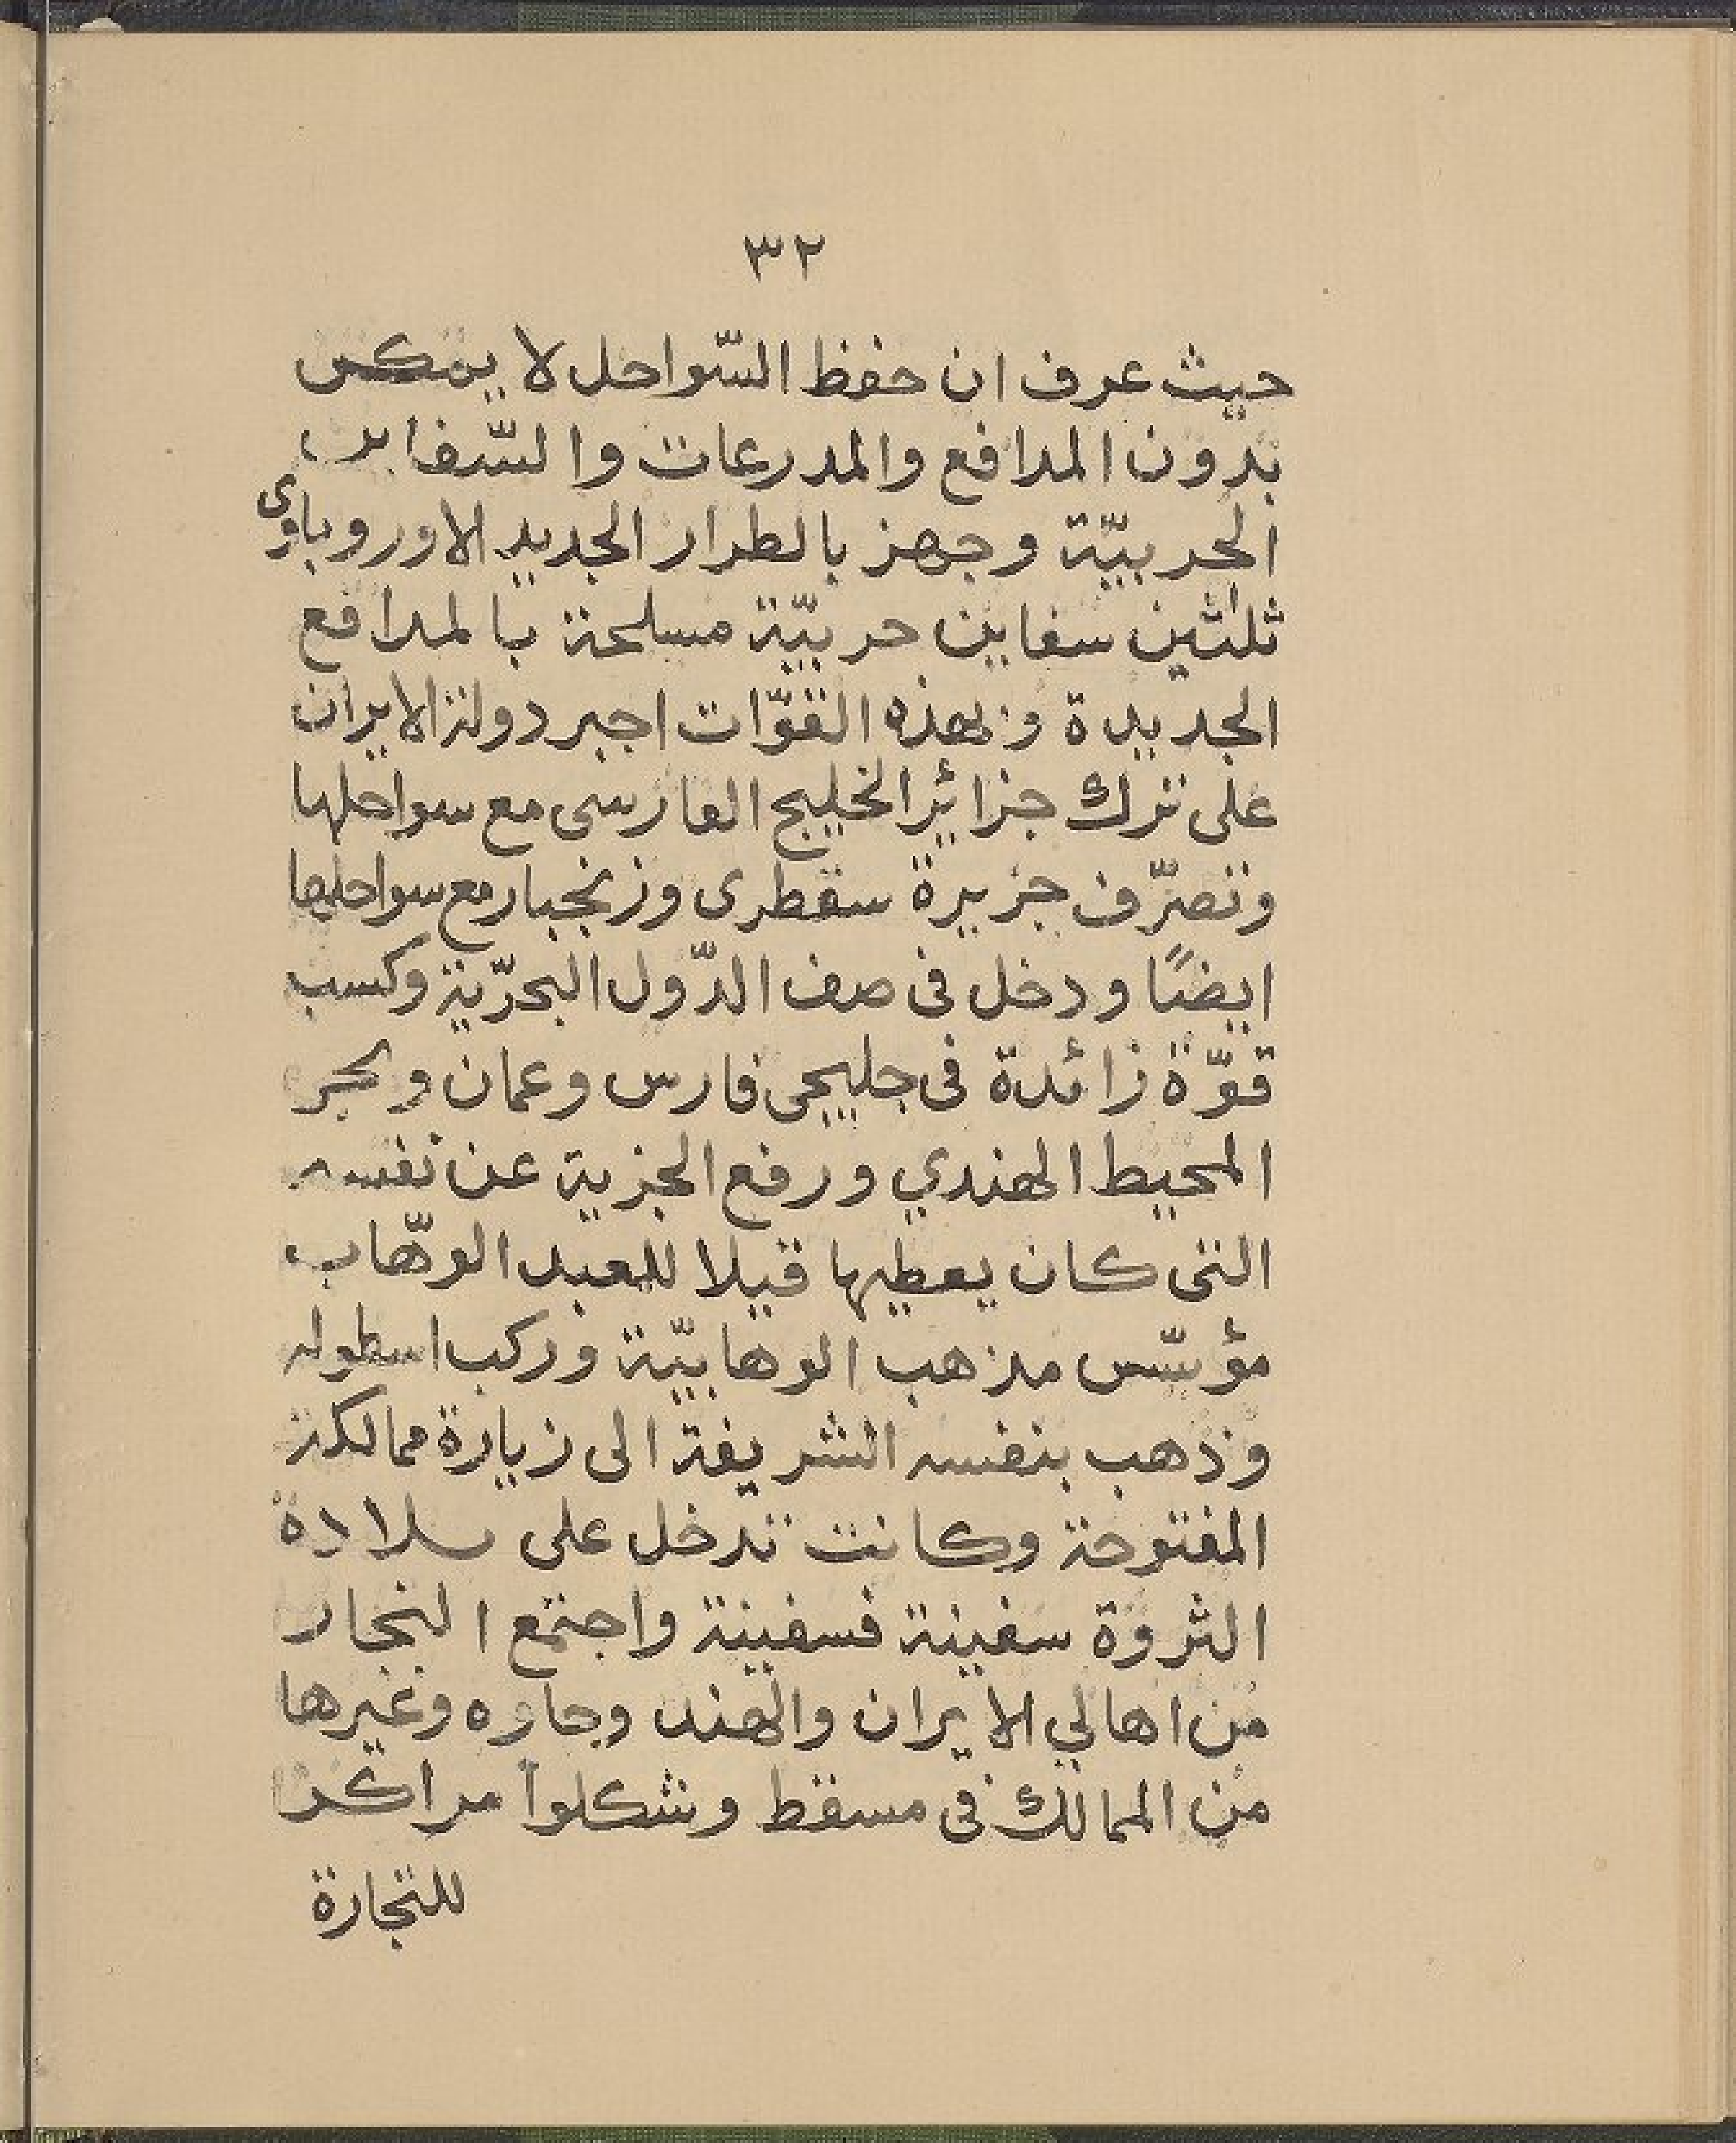 ٣٢
حيث عرف ان حفظ السّواحل لا يمكن
بدون المدافع والمدرعات والسّفاين
الحربيّة وجهز بالطراز الجديد الاوروپاوي
ثلثين سفاين حربيّة مسلحة بالمدافع
الجديدة وبهذه القوّات اجبر دولة الايران
على ترك جزائر الخليج الفارسى مع سواحلها
وتصرّف جزيرة سقطرى وزنجبار مع سواحليها
ايضًا ودخل فى صف الدّول البحرّية وكسب
قوّة زائدة فى جليجى فارس وعمان وبحر
المحيط الهندي ورفع الجزية عن نفسه
التى كان يعطيها قبلا للعبد الوهّاب
مؤسّس مذهب الوهابيّة وركب اسطوله
وذهب بنفسه الشريفة الى زيارة ممالكة
المفتوحة وكانت تدخل على بلاده
الثروة سفينة فسفينة واجتمع التجار
من اهالي الايران والهند وجاوه وغيرها
من الممالك فى مسقط وشكلوا مراكز
للتجارة